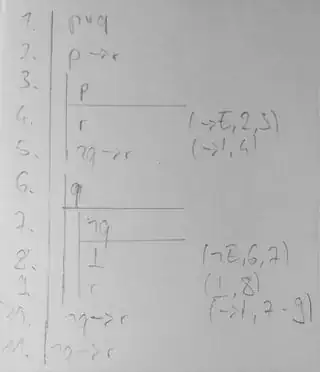 1. p∨q
2. p→r
3. p
4. r (→E,2,3)
5. ¬q→r (→I,4)
6. q
7. ¬q
8. ⊥ (¬E,6,7)
9 r (⊥,8)
¬q→r (→I,7-9)
11. ¬q→r